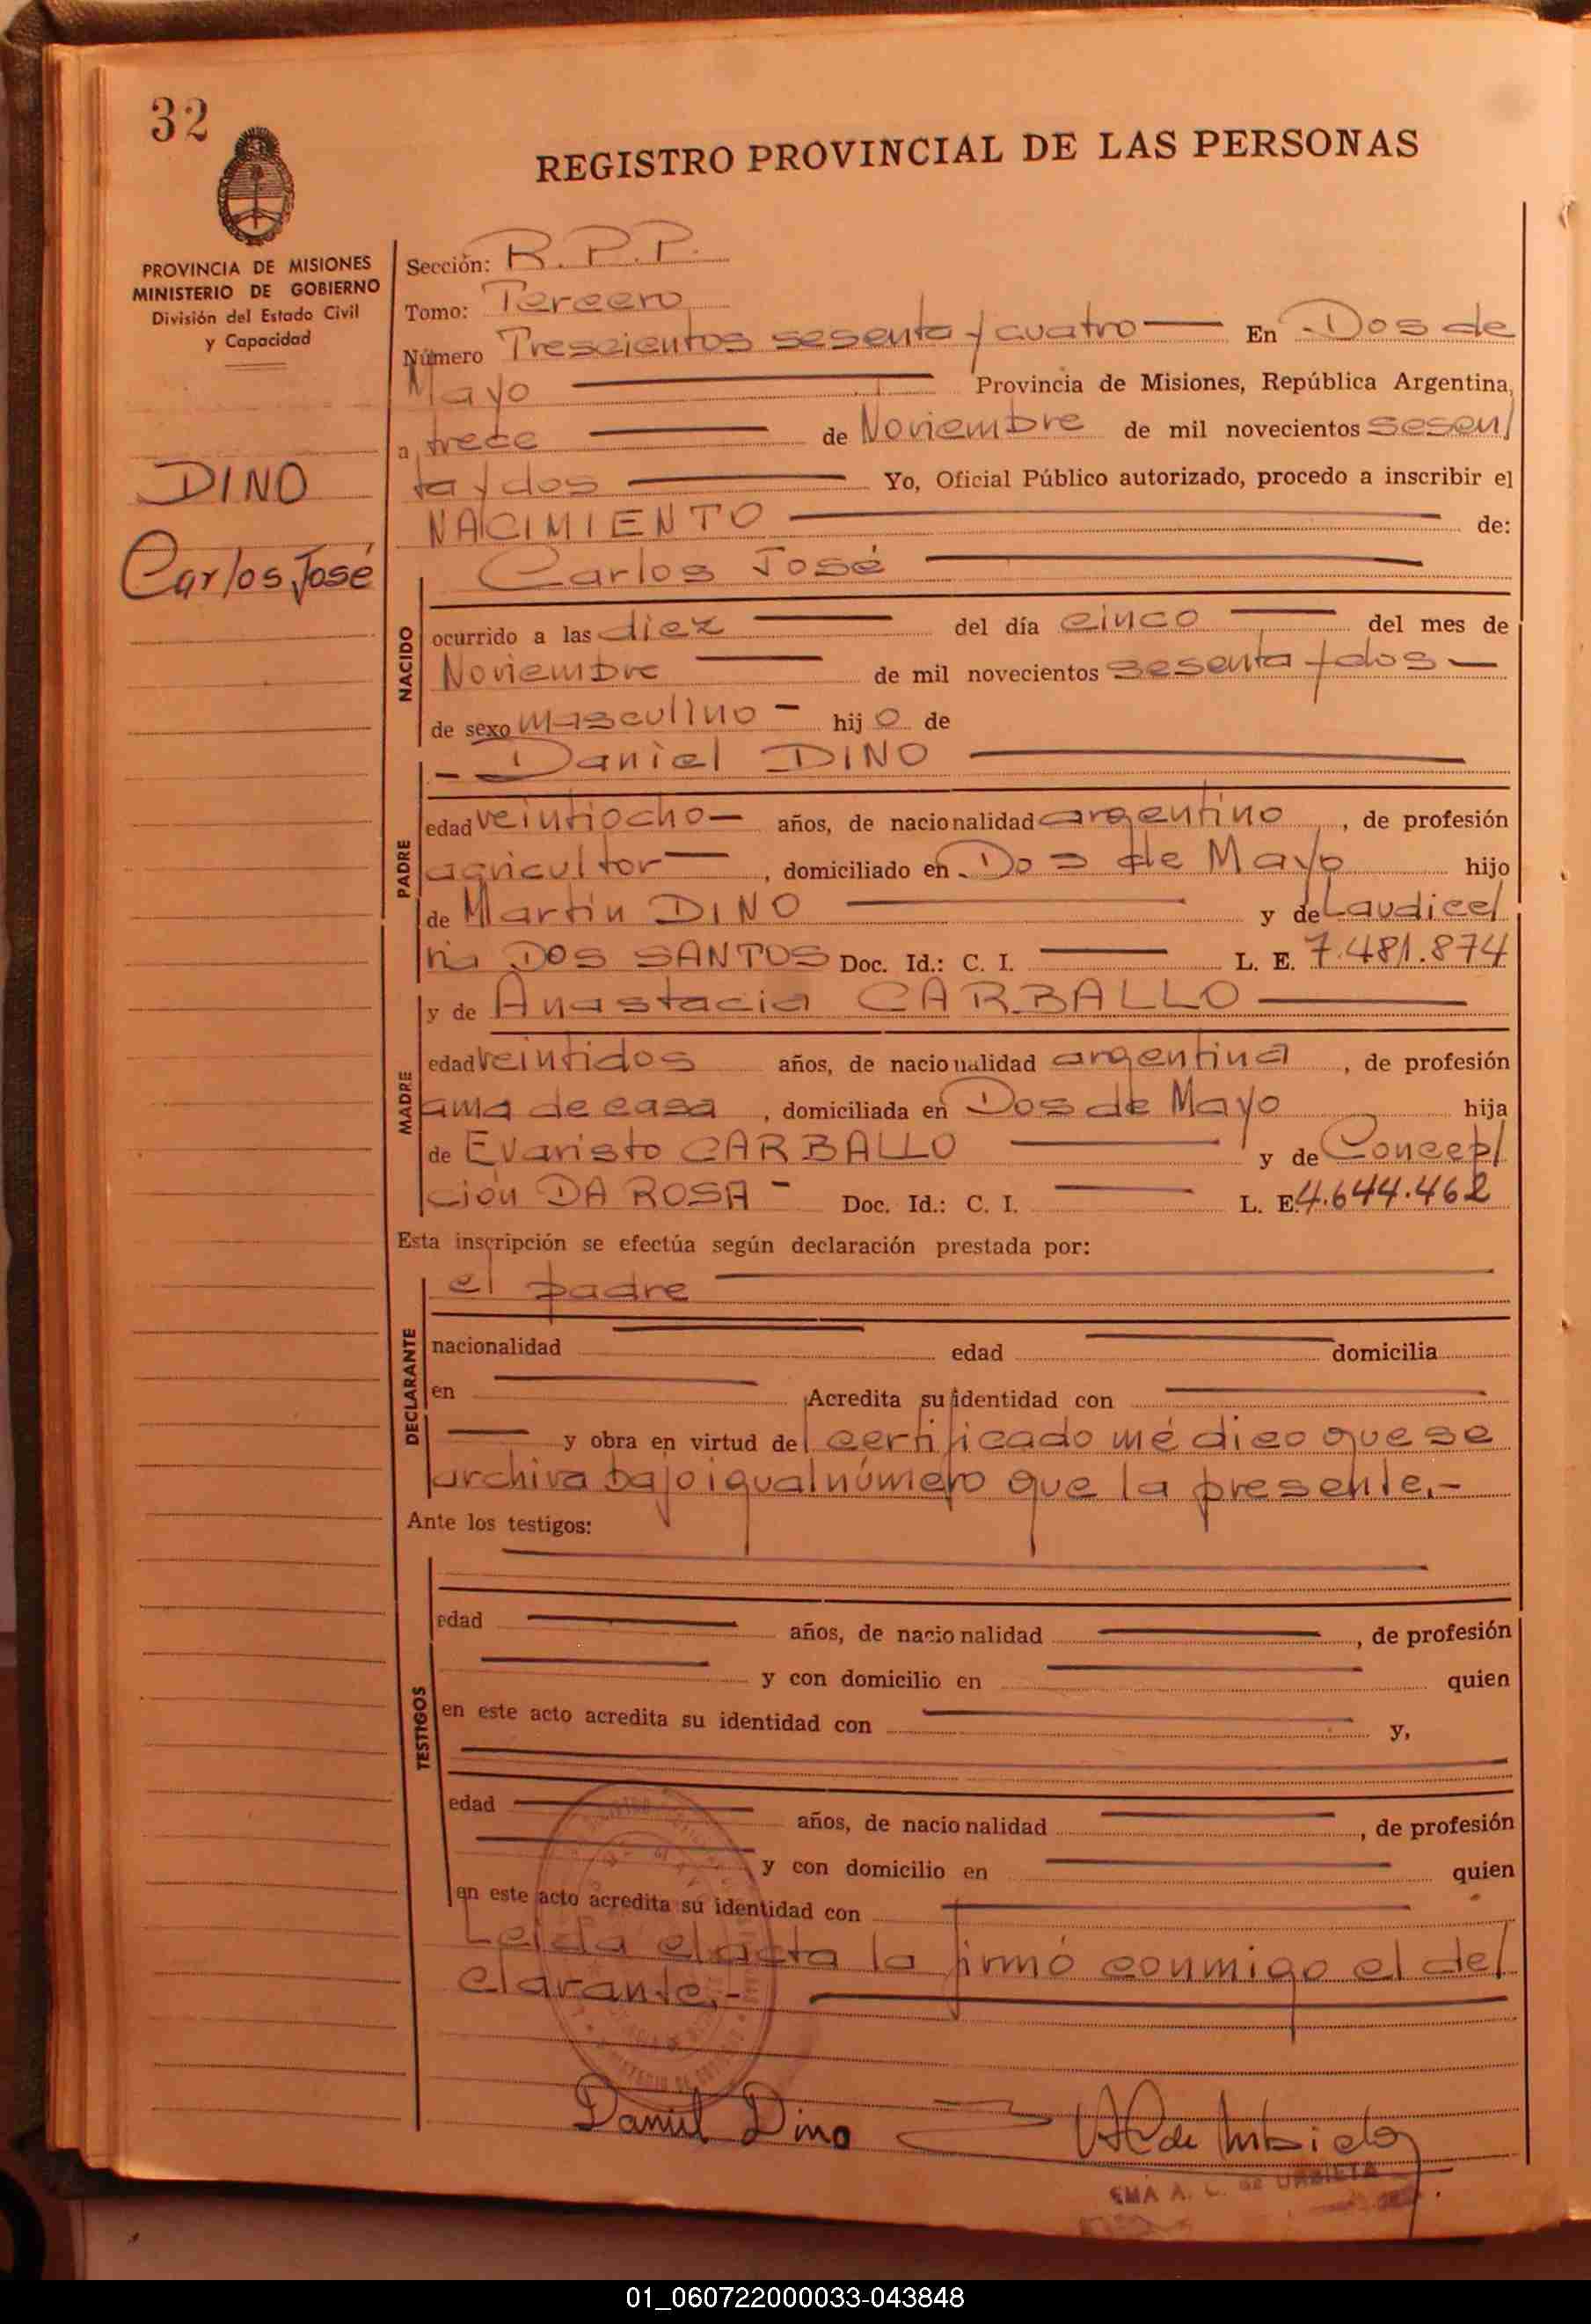 32
REGISTRO PROVINCIAL DE LAS PERSONAS
PROVINCIA DE MISIONES
MINISTERIO DE GOBIERNO
División del Estado Civil
y Capacidad
DINO
Carlos José
Sección: R.P.P.
Tomo: Tercero
Número Trescientos sesenta y cuatro — En Dos de
Mayo — Provincia de Misiones, República Argentina,
a trece — de Noviembre de mil novecientos sesen/
ta y dos — Yo, Oficial Público autorizado, procedo a inscribir el
NACIMIENTO — de:
Carlos José —
NACIDO
ocurrido a las diez — del día cinco — del mes de
Noviembre — de mil novecientos sesenta y dos —
de sexo masculino - hij o de
- Daniel DINO —
PADRE
edad veintiocho — años, de nacionalidad argentino, de profesión
agricultor —, domiciliado en Dos de Mayo hijo
de Martín DINO — y de Laudicel/
na DOS SANTOS Doc. Id.: C. I. — L. E. 7.481.874
y de Anastacia CARBALLO —
MADRE
edad veintidos años, de nacionalidad argentina, de profesión
ama de casa, domiciliada en Dos de Mayo hija
de Evaristo CARBALLO — y de Concep/
ción DA ROSA - Doc. Id.: C. I. — L. E. 4.644.462
Esta inscripción se efectúa según declaración prestada por:
el padre —
DECLARANTE
nacionalidad — edad — domicilia
en — Acredita su identidad con —
— y obra en virtud de certificado médico que se
archiva bajo igual número que la presente.-
Ante los testigos:
TESTIGOS
edad — años, de nacionalidad —, de profesión
— y con domicilio en — quien
en este acto acredita su identidad con — y,
edad — años, de nacionalidad —, de profesión
— y con domicilio en — quien
en este acto acredita su identidad con —
Leída el acta la firmó conmigo el de/
clarante.- —
Daniel Dino
EMA A. C. de URBIETA
01_060722000033-043848